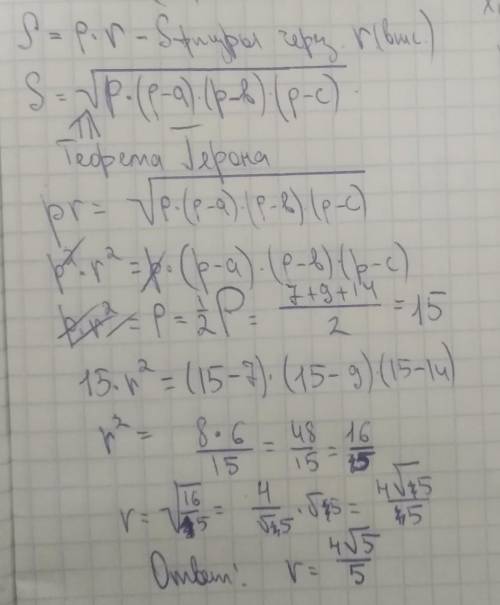 S = p · r - S фигуры через r (впис.)
S = √p·(p-a)·(p-в)·(p-c)
Теорема Герона
pr = √p·(p-a)·(p-в)(p-c)
p²·r² = p·(p-a)·(p-в)·(p-c)
p·r² = p = 1/2 P = (7+9+14)/2 = 15
15·r² = (15-7)·(15-9)·(15-14)
r² = (8·6)/15 = 48/15 = 16/5
r = √16/5 = 4/√5 · √5 = 4√5/5
Ответ: r = 4√5/5